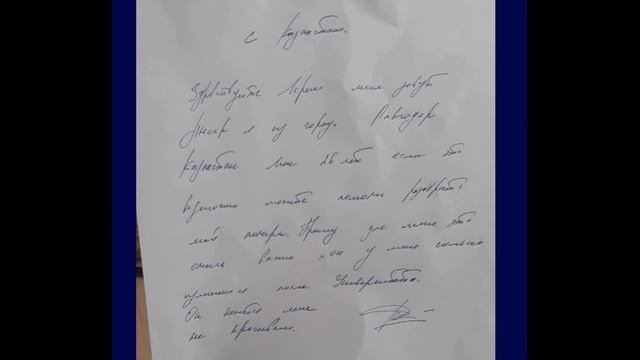 с Казахстан.
Здравствуйте меня зовут
Ансар я из города Павлодар
Казахстан мне 26 лет если это
возможно можете помочь разобрать
мой почерк. Прошу для меня это
очень важно он у меня сильно
после Университета.
Он меня
не красивый.